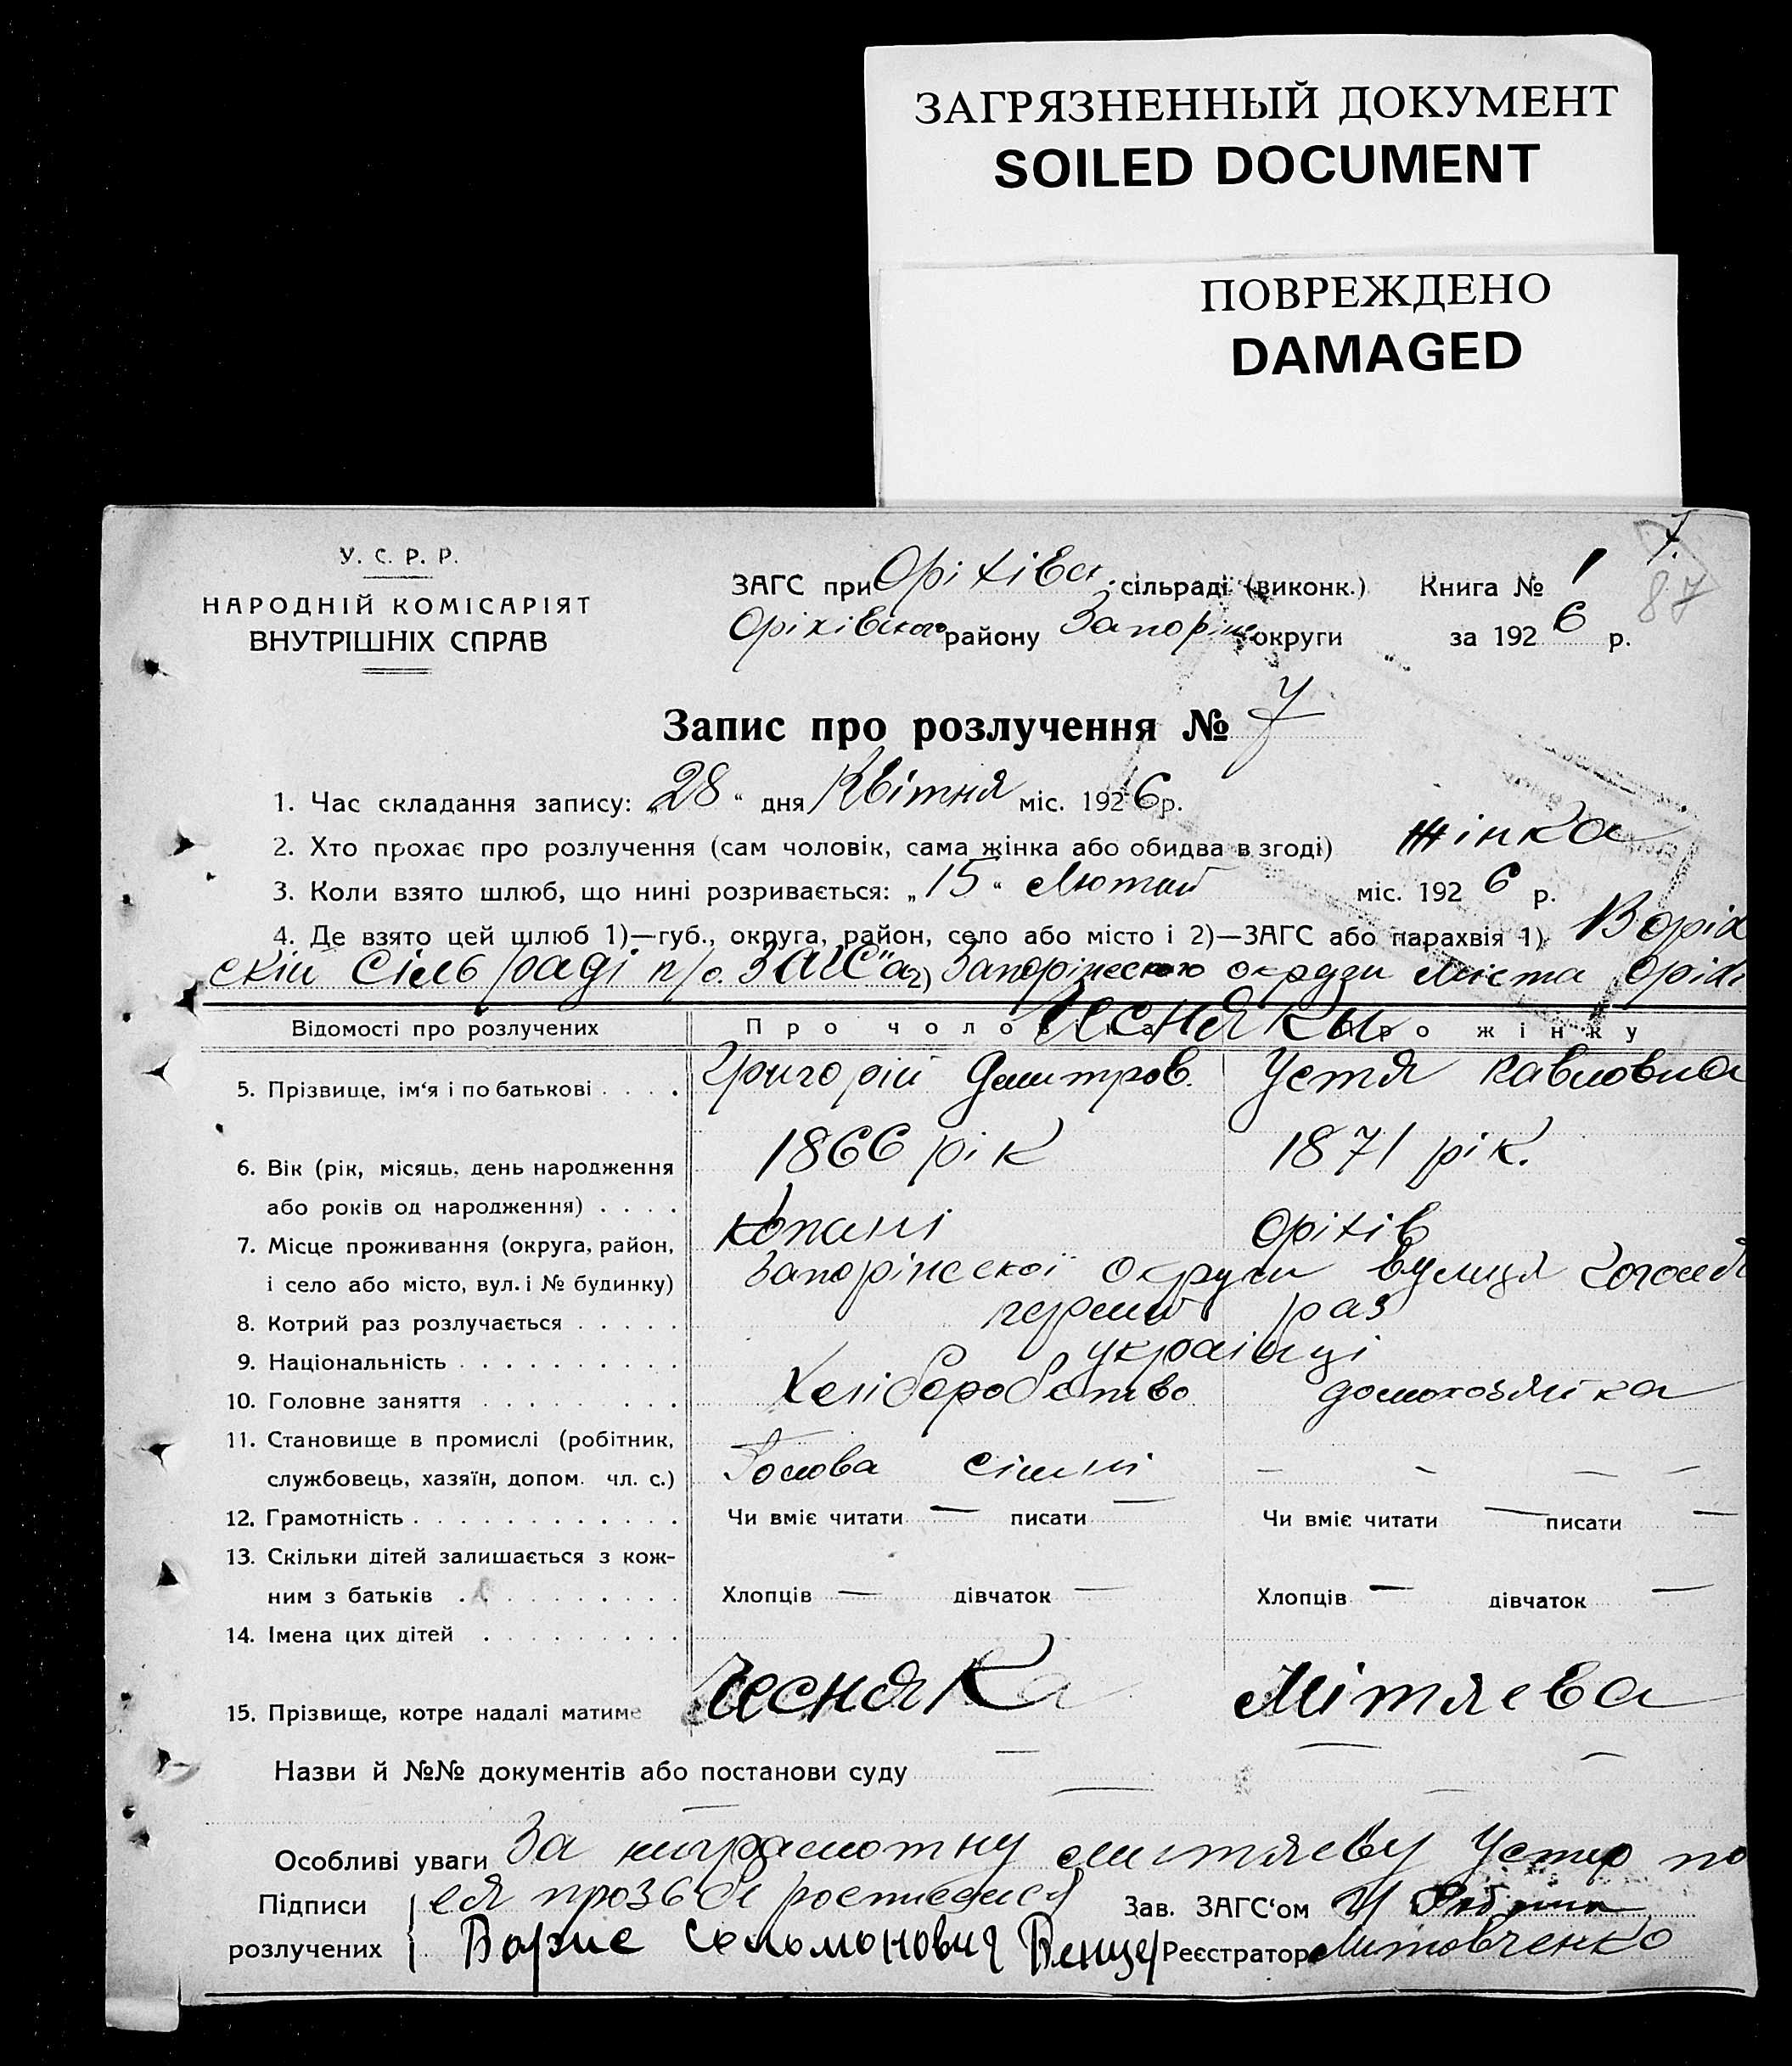 ЗАГРЯЗНЕННЫЙ ДОКУМЕНТ
SOILED DOCUMENT
ПОВРЕЖДЕНО
DAMAGED
7.
87
У. С. Р. Р.
НАРОДНІЙ КОМІСАРІЯТ
ВНУТРІШНІХ СПРАВ
ЗАГС при Оріхівск. сільраді (виконк.) Книга № 1
Оріхівского району Запоріж округи за 1926 р.
Запис про розлучення № 7
1. Час складання запису: „28“ дня Квітня міс. 1926 р.
2. Хто прохає про розлучення (сам чоловік, сама жінка або обидва в згоді) жінка
3. Коли взято шлюб, що нині розривається: „15“ Лютий міс. 1926 р.
4. Де взято цей шлюб 1)—губ., округа, район, село або місто і 2)—ЗАГС або парахвія 1) В оріх
скій Сільраді п/о. ЗАГС"а 2) Запоріжскою округи міста Оріхі
Відомості про розлучених Про чоловіка Про жінку
Чесняки
5. Прізвище, ім‘я і по батькові . . . . Григорій Дмитров. Устя Павловна
6. Вік (рік, місяць, день народження 1866 рік 1871 рік.
або років од народження) . . . .
7. Місце проживання (округа, район, Копані Оріхів
і село або місто, вул. і № будинку) Запоріжскої округи вулиця Гоголя
8. Котрий раз розлучається . . . . . перший раз
9. Національність . . . . . . . . . . українці
10. Головне заняття . . . . . . . . . Хліборобство домохозяїка
11. Становище в промислі (робітник,
службовець, хазяїн, допом. чл. с.) Голова сімні — — — —
12. Грамотність . . . . . . . . . . . . Чи вміє читати — писати — Чи вміє читати — писати —
13. Скільки дітей залишається з кож-
ним з батьків . . . . . . . . . . Хлопців — дівчаток — Хлопців — дівчаток —
14. Імена цих дітей . . . . . . . . .
15. Прізвище, котре надалі матиме Чесняка Мітяєва
Назви й №№ документів або постанови суду
Особливі уваги За ниграмотну митяеву Устю по
Підписи ея прозьби росписался Зав. ЗАГС‘ом
розлучених Борис Соломонович Венцер Реєстратор Литовченко